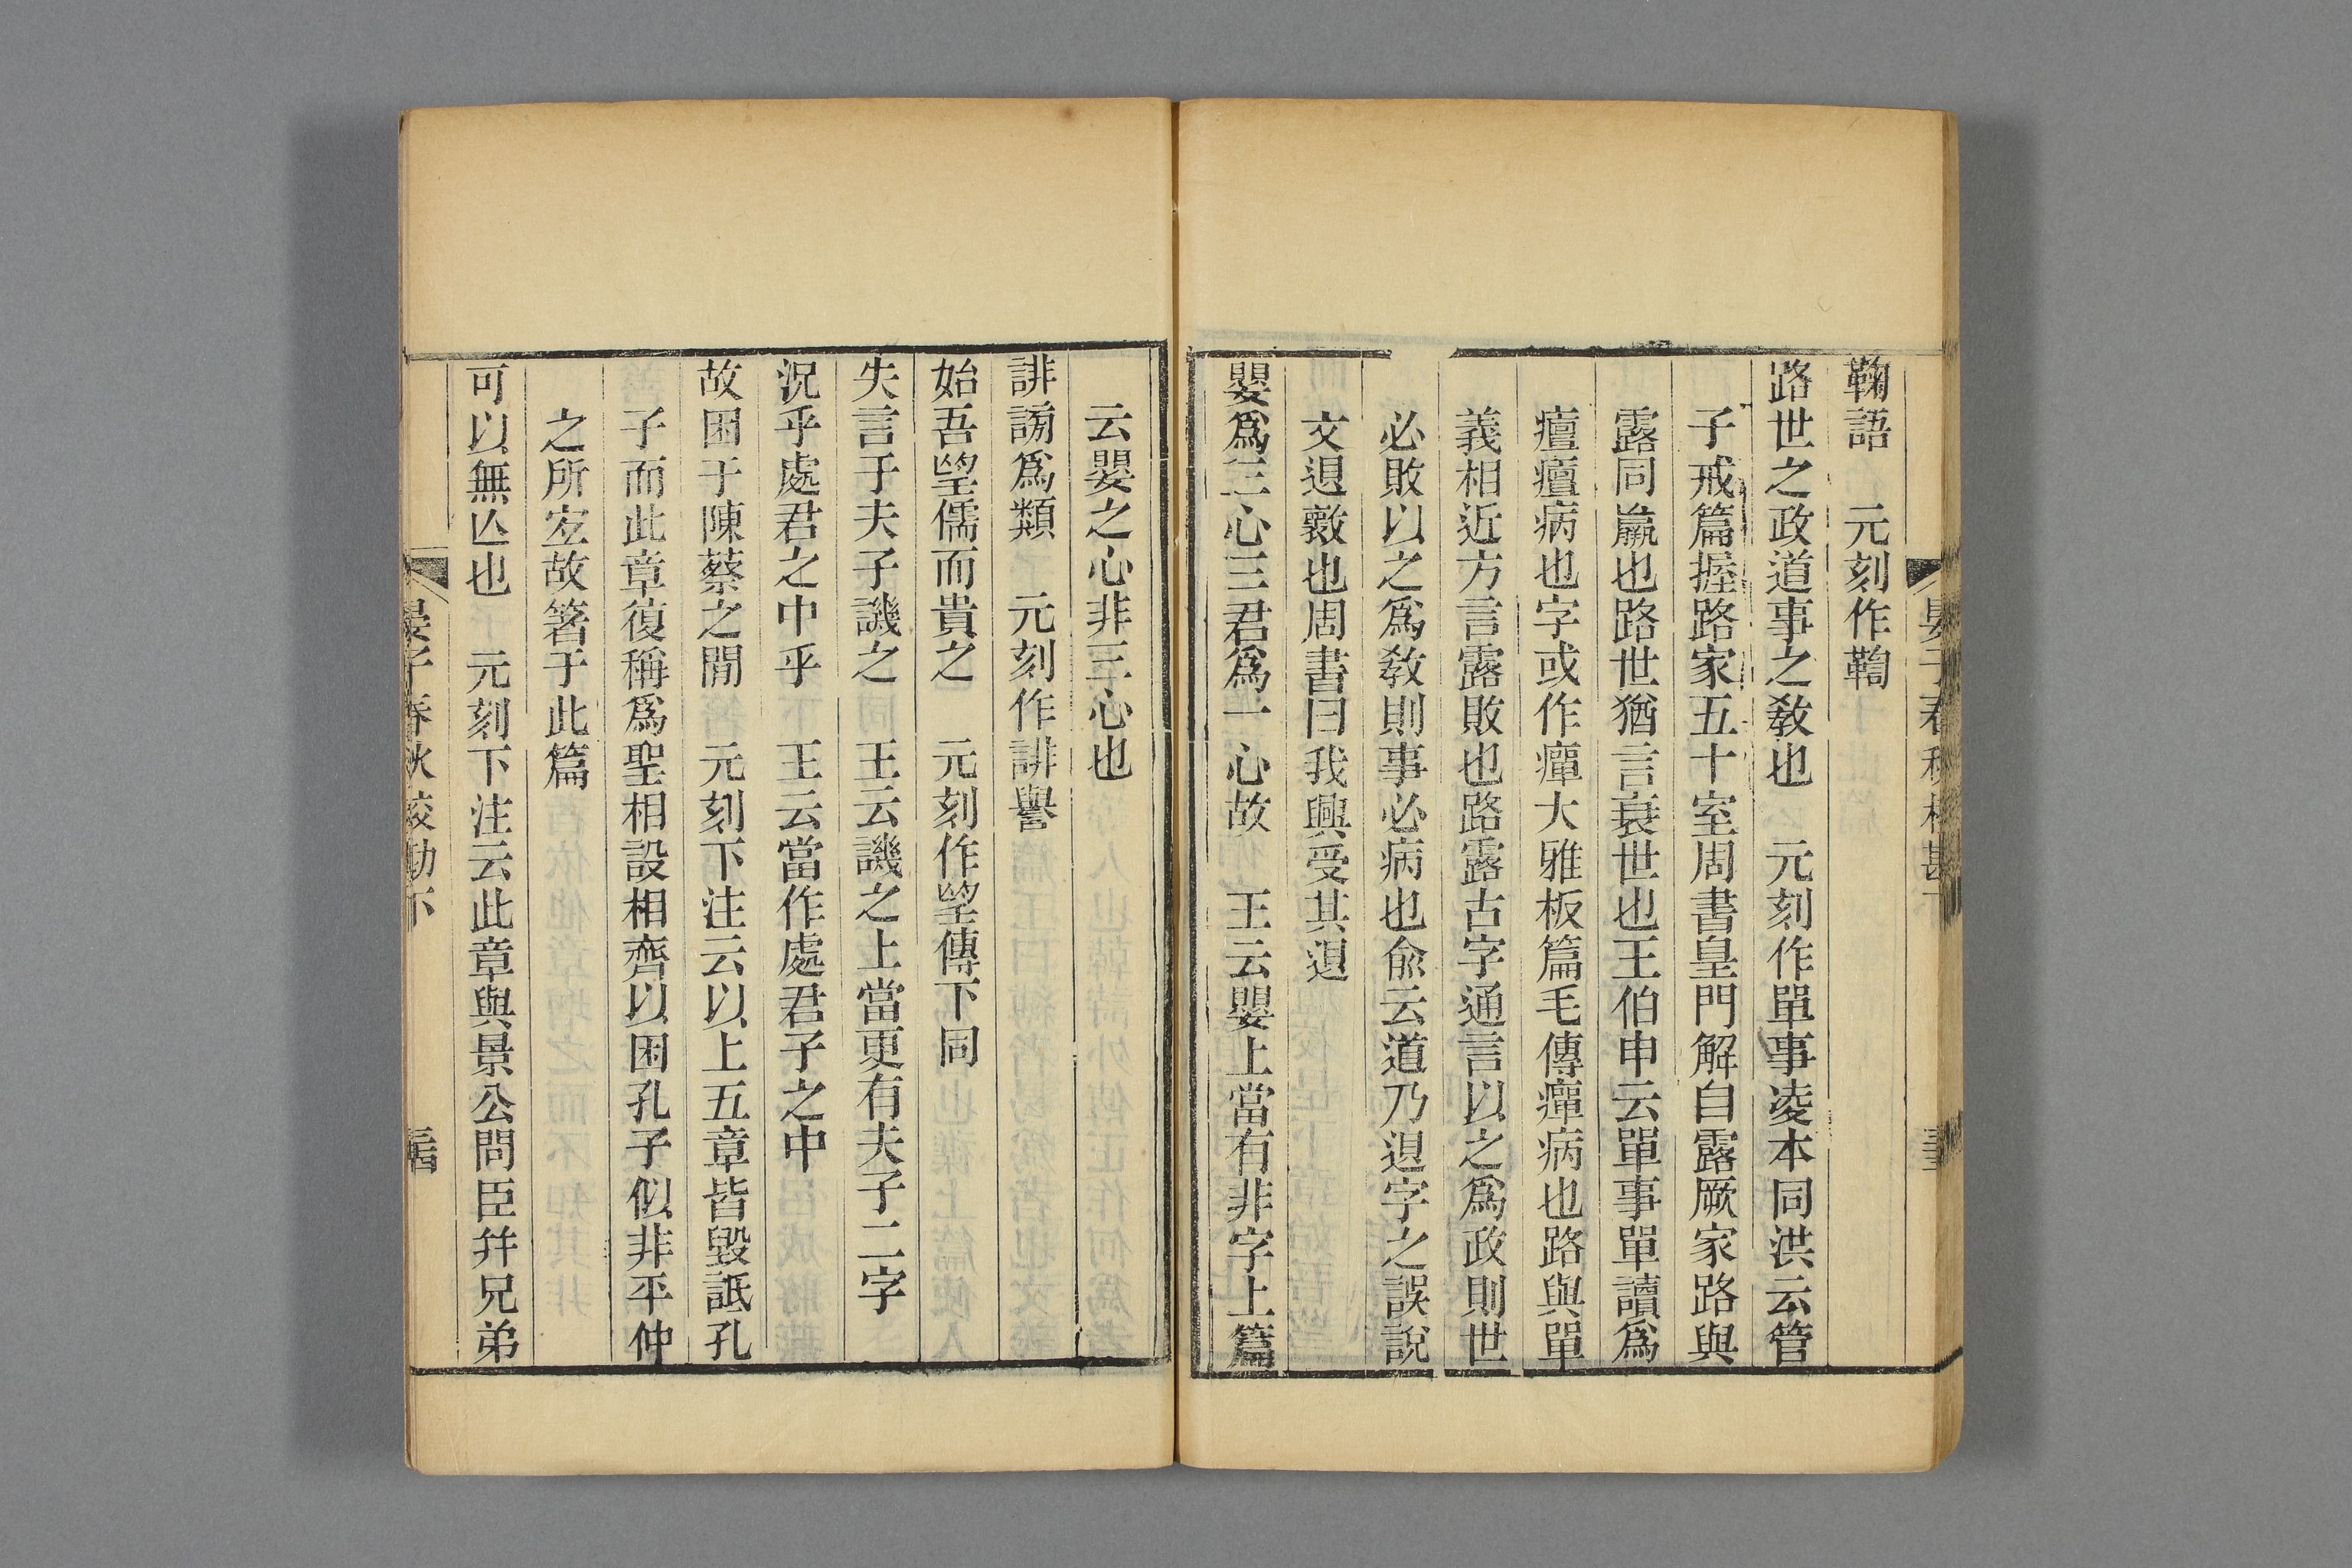 鞠語　元刻作鞫
路世之政道事之敎也　元刻作單事凌本同洪云管
子戒篇握路家五十室周書皇門解自露厥家路與
露同羸也路世猶言衰世也王伯申云單事單讀爲
癉癉病也字或作瘒大雅板篇毛傳癉病也路與單
義相近方言露敗也路露古字通言以之爲政則世
必敗以之爲敎則事必病也俞云道乃𨓆字之誤說
文𨓆斁也周書曰我興受其𨓆
嬰爲三心三君爲一心故　王云嬰上當有非字上篇
云嬰之心非三心也
誹謗爲類　元刻作誹譽
始吾望儒而貴之　元刻作望傳下同
失言于夫子譏之　王云譏之上當更有夫子二字
況乎處君之中乎　王云當作處君子之中
故困于陳蔡之閒　元刻下注云以上五章皆毀詆孔
子而此章復稱爲聖相設相齊以困孔子似非平仲
之所宐故箸于此篇
可以無亾也　元刻下注云此章與景公問臣幷兄弟
晏子春秋校勘下